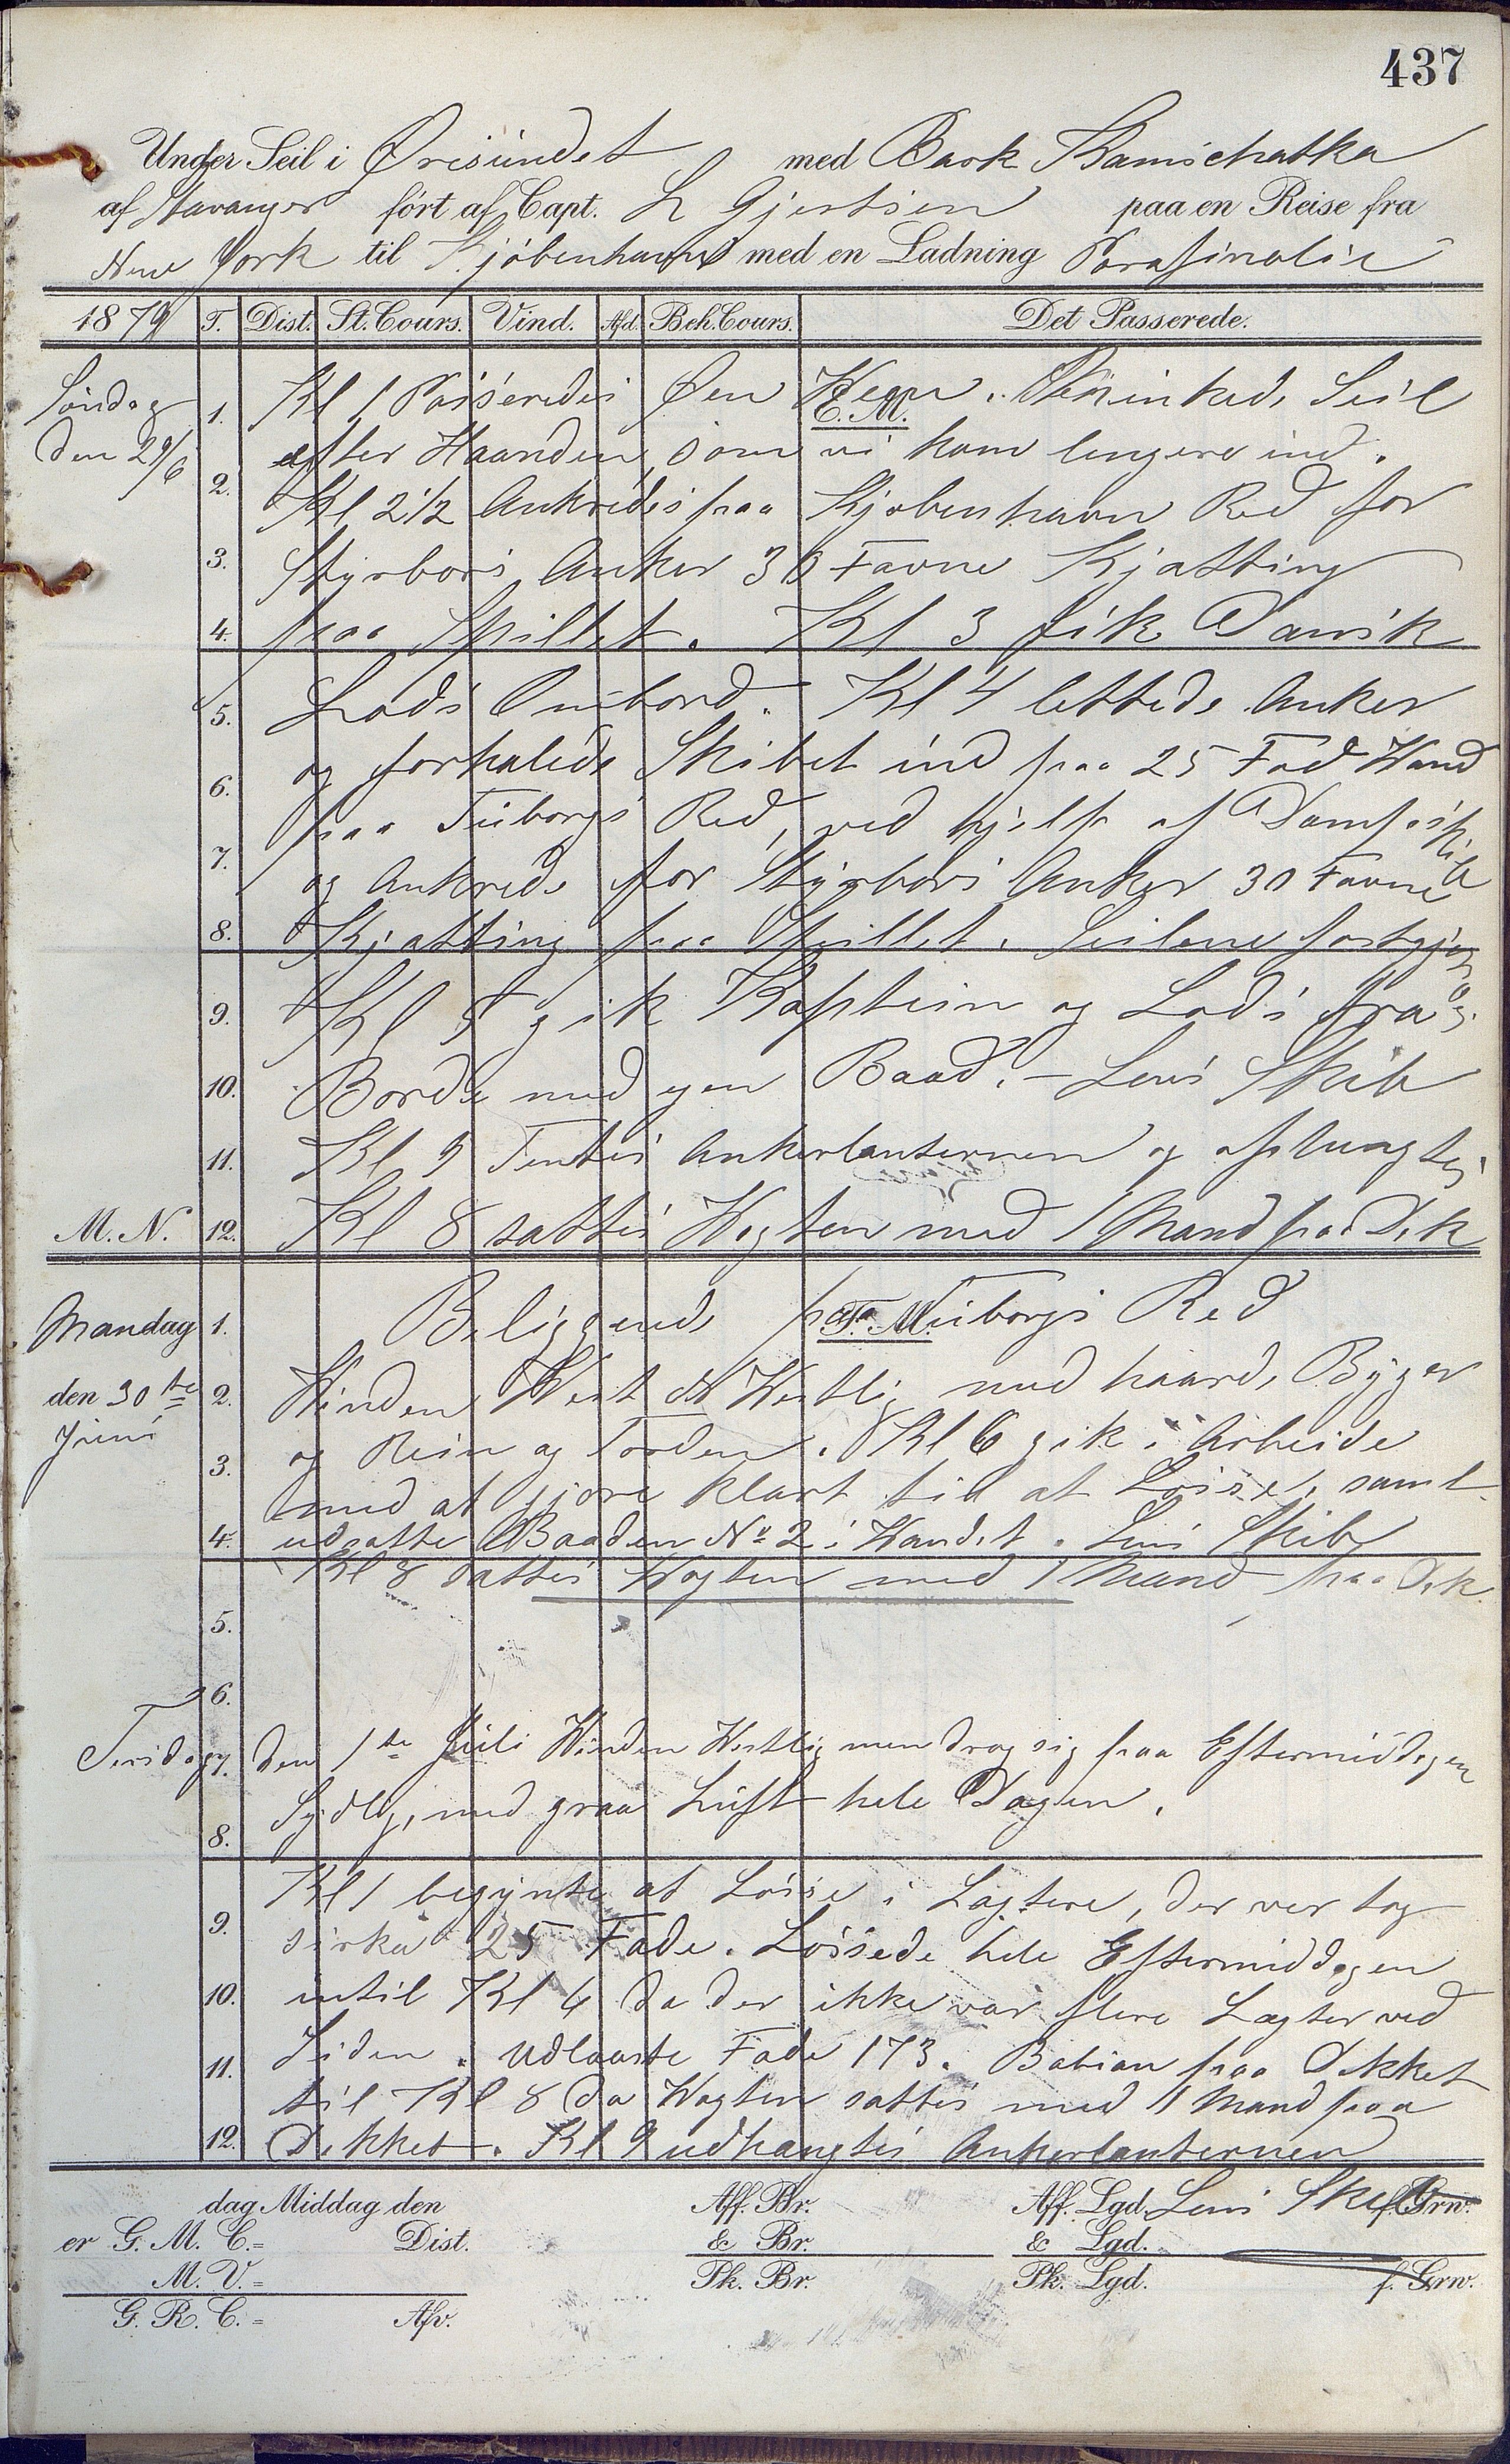 437
Under Seil i Öresundet med Bark Kamschatka
af Stavanger fört af Capt. L Gjertsen paa en Reise fra
New York til Kjöbenhavn med en Ladning Parafinolie
1879 T. Dist. St. Cours. Vind. Afd. Beh. Cours. Det Passerede.
Söndag Kl 1 Passeredes Öen Hven. Minkede Seil
E. M.
den 29/6 efter Haanden, som vi kom lengere ind.
Kl 2 1/2 Ankredes paa Kjøbenhavn Red for
Styrbors Anker 30 Favne Kjætting
paa Spillet. Kl 3 fik Dansk
Lods Ombord. Kl 4 lettede Anker
og forhalede Skibet ind paa 25 Fod Vand
paa Tuborgs Red, ved hjelp af Dampskib
og Ankrede for Styrbors Anker 30 Favne
Kjætting paa Spillet. Seilene fastgjort
Kl 5 gik Kaptein og Lods fra
Borde med egen Baad. - Lens Skib
Kl 9 Tentes Ankerlanternen og ophengtes
M. N. 12. Kl 8 sattes Vagten med 1 Mand paa Dek
Mandag 1. Beliggende paa Tuborgs Red
F. M.
den 30te 2. Vinden Vest NVestlig med haarde Byger
Juni og Rein og Torden. Kl 6 gik i Arbeide
3. med at gjøre klart til at Losse, samt
4. udsatte Baaden No 2 i Vandet. Lens Skib
Kl 8 sattes Vagten med 1 Mand paa Dek.
5.
6.
Tirsdag 7. den 1te Juli Vinden Vestlig men drog sig paa Eftermiddagen
8. Sydlig, med graa Luft hele Dagen.
Kl 1 begynte at Losse i Lægtere, der ver tog
9. sirka 25 Fade. Lossede hele Eftermiddagen
10. intil Kl 4 da der ikke var flere Lægter ved
11. Siden. Udlossete Fade 173. Babian paa Dekket
til Kl 8 da Vagten sattes med 1 Mand paa
12. Dekket. Kl 9 udhangtes Ankerlanternen
dag Middag den Aff. Br. Aff. Lgd. Lens Skib f. Grw.
er G. M. C.= Dist. & Br. & Lgd.
M. V.= Pk. Br. Pk. Lgd. f. Grw.
G. R. C.= Afv.